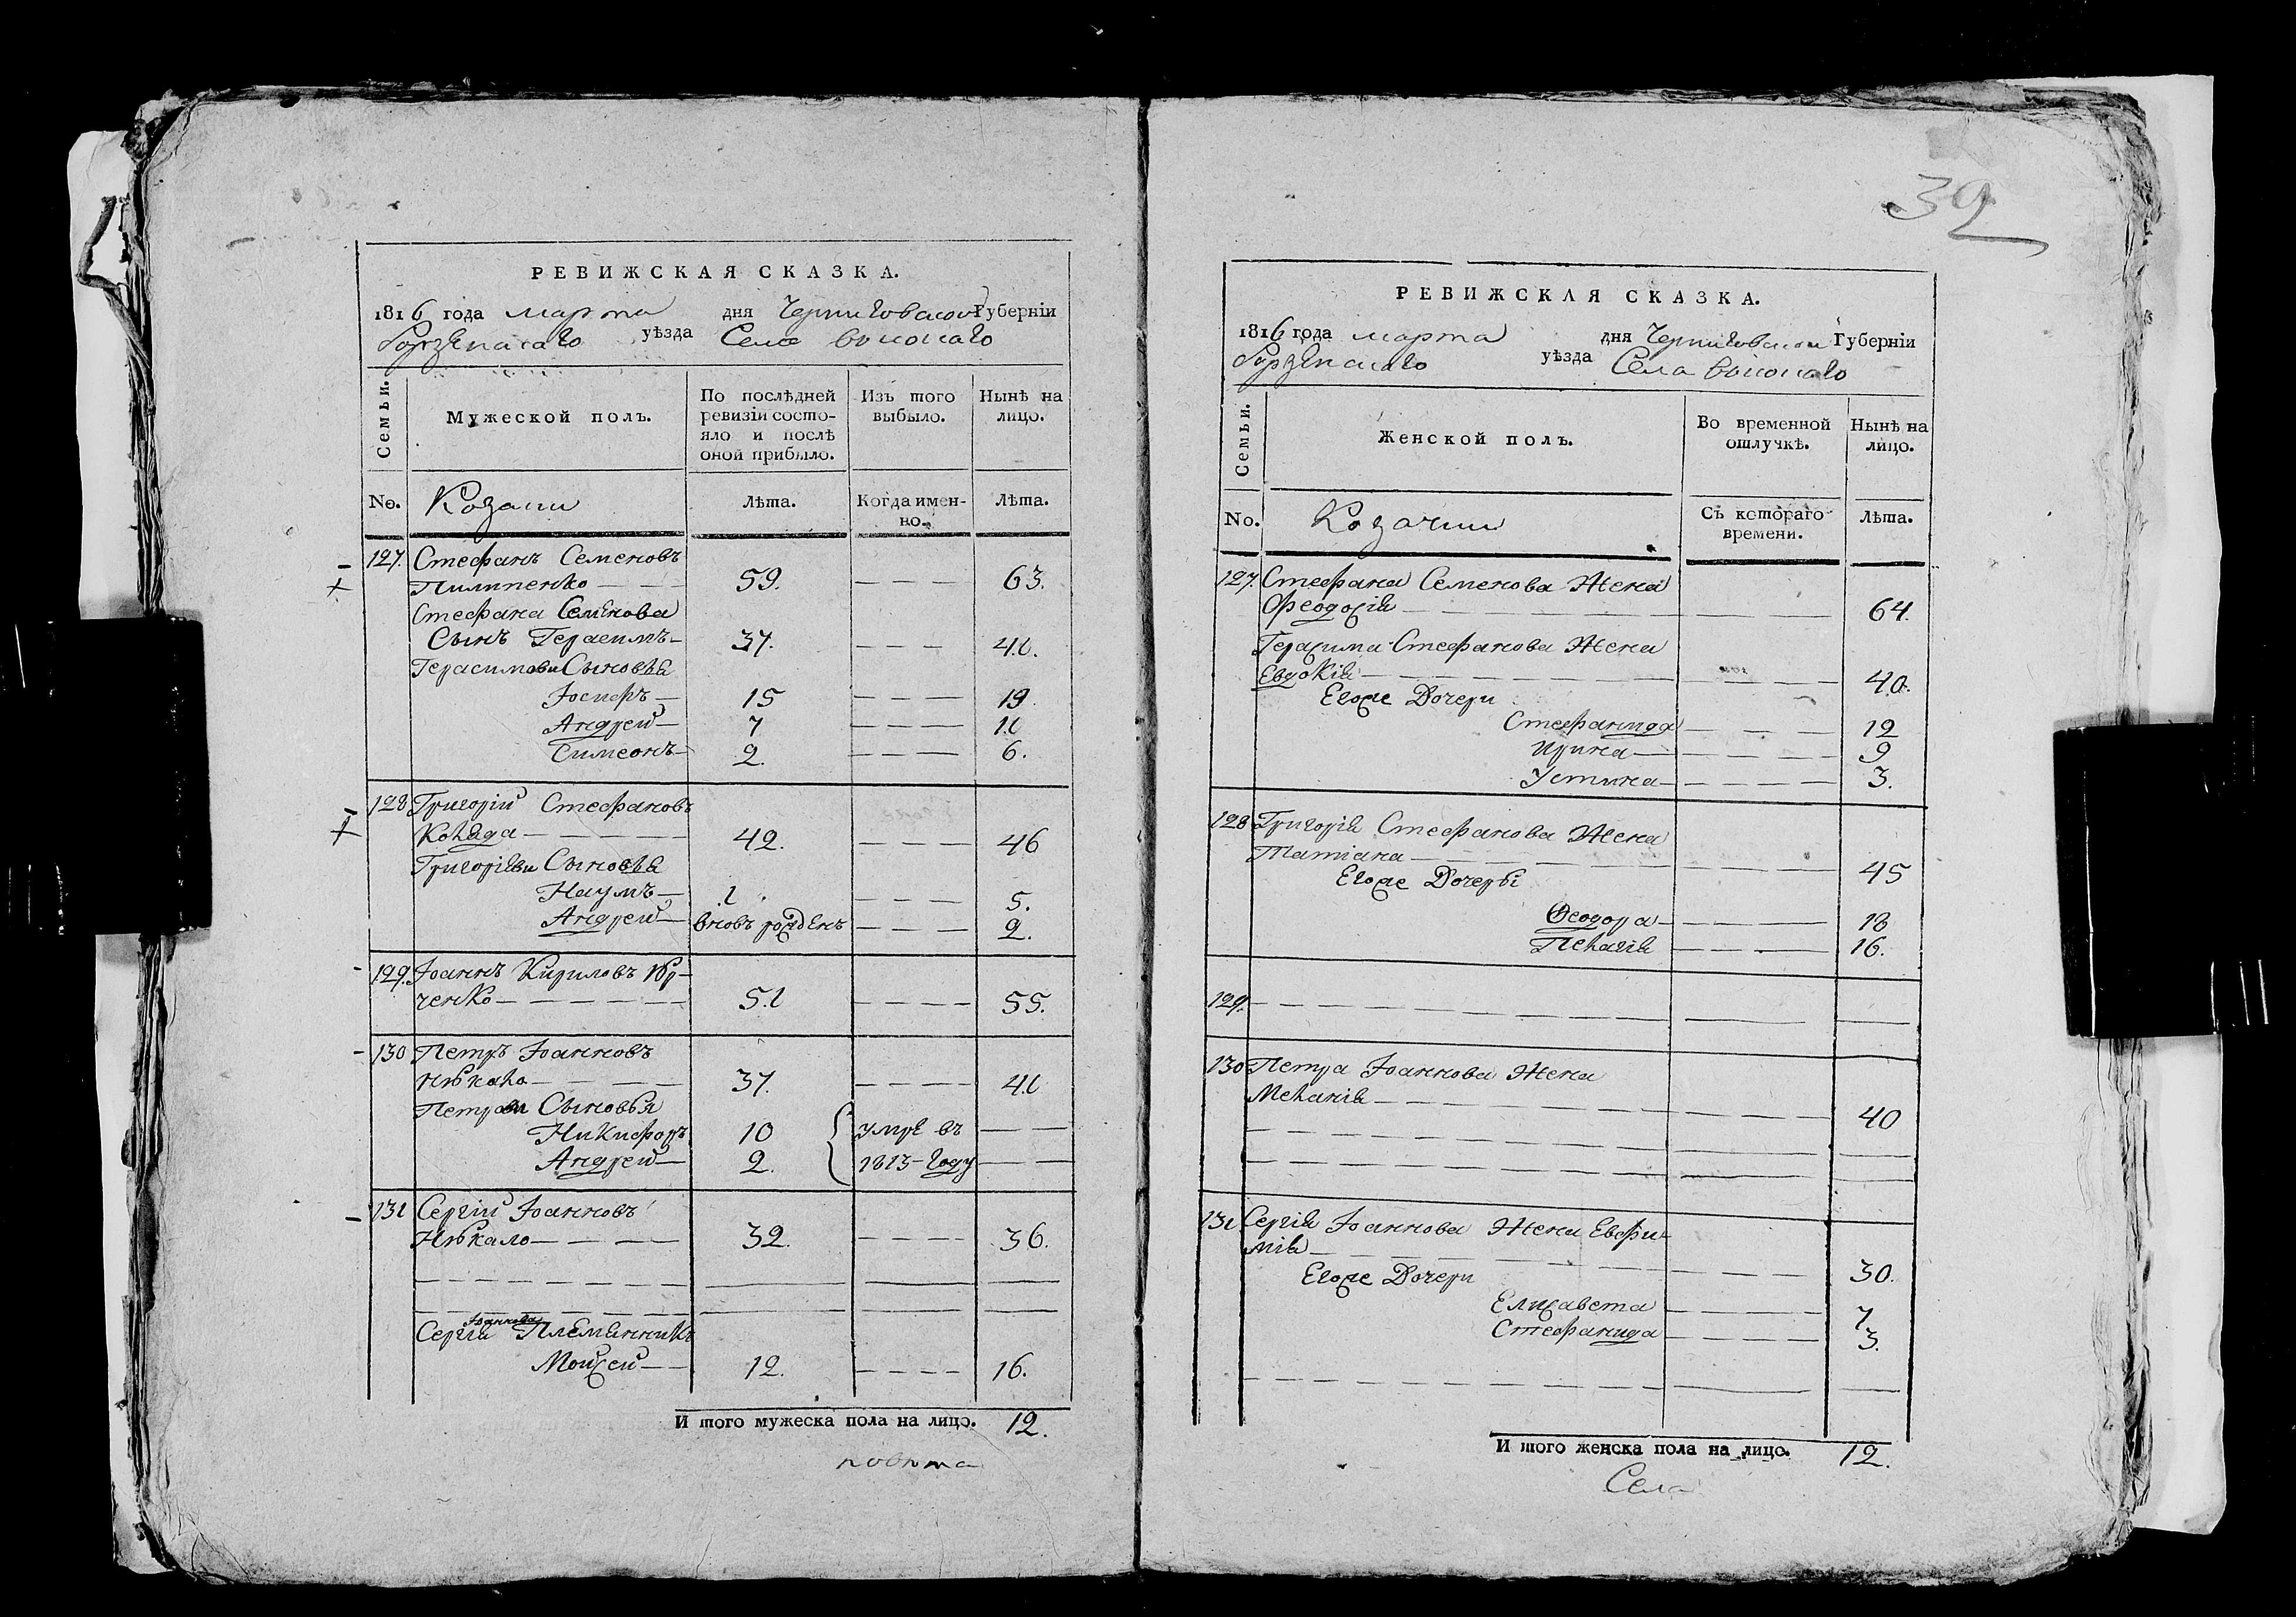 39
РЕВИЖСКАЯ СКАЗКА.
1816 года марта дня Черниговской Губерніи
Борзенскаго уѣзда Села
Семьи.
Мужеской полъ.
По послѣдней ревизіи состояло и послѣ оной прибыло.
Изъ того выбыло.
Нынѣ на лицо.
No. Козаки
Лѣта.
Когда именно.
Лѣта.
127. Стефанъ Семеновъ
Пилипенко — — — 59. — — — 63.
Стефана Семенова
Сынъ Герасимъ — 37. — — — 41.
Герасимови Сыновья
Іосифъ — 15 — — — 19.
Андрей — 7 — — — 11
Симеонъ — 2. — — — 6.
128 Григорій Стефановъ
Коляда — — — — 42. — — — 46
Григоріеви Сыновья
Наумъ — 1 — — — 5.
Андрей — вновь рожденъ — — — 2.
129. Іоаннъ Кириловъ Юр-
ченко — — — — — 51 — — — — 55.
130 Петръ Іоанновъ
Нѣкало — — — — 37. — — — — 41
Петрови Сыновья
Никифоръ 10 { умре въ — —
Андрей — 2. { 1813 – году — —
131 Сергій Іоанновъ
Нѣкало — — — — 32. — — — — 36.
Іоаннова
Сергія Племянникъ
Моисей — — 12. — — — — 16.
И того мужеска пола на лицо. 12.
РЕВИЖСКАЯ СКАЗКА.
1816 года марта дня Черниговской Губерніи
Борзенскаго уѣзда Села
Семьи.
Женской полъ.
Во временной отлучкѣ.
Нынѣ на лицо.
No. Козачки
Съ котораго времени.
Лѣта.
127. Стефана Семенова Жена
Феодосія — — — — 64.
Герасима Стефанова Жена
Евдокія — — — — 40.
Егоже Дочери
Стефанида — — — 12
Ирина — — — — 9
Устина — — — — 3.
128 Григорія Стефанова Жена
Татіана — — — — 45
Егоже Дочери
Феодора — — — — 18
Пелагія — — — — 16.
129. — — — — — —
130 Петра Іоаннова Жена
Меланія — — — — 40
131 Сергія Іоаннова Жена Евфи-
мія — — — — — 30.
Егоже Дочери
Елисавета — — — — 7
Стефанида — — — — 3.
И того женска пола на лицо. 12.
Села